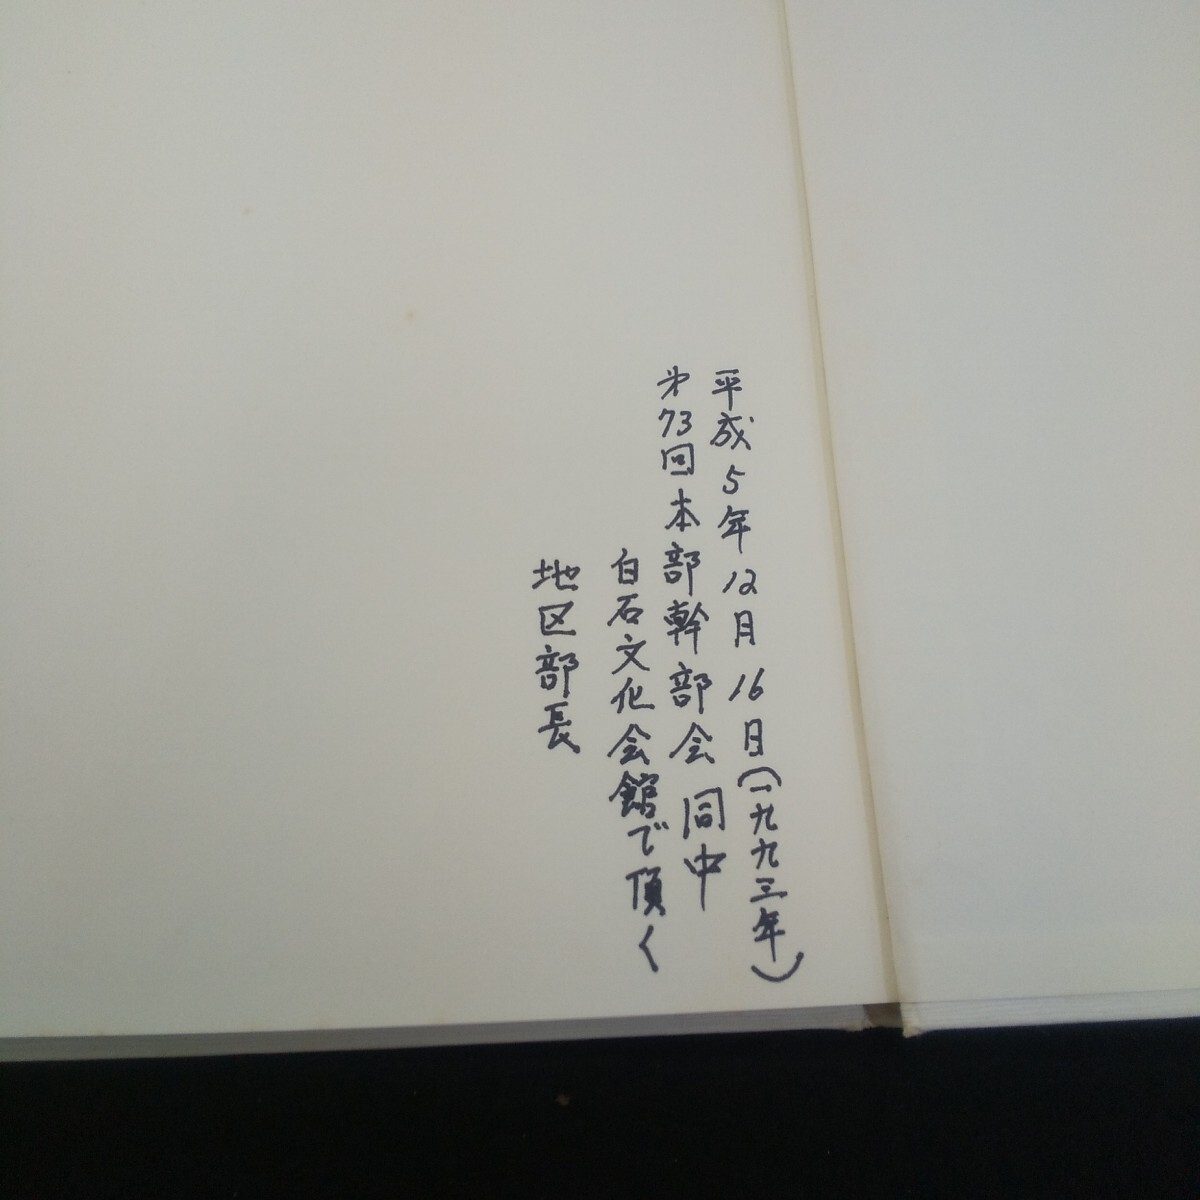 平成5年12月16日(一九九三年)
㐧73回本部幹部会 同中
白石文化会館で頂く
地区部長